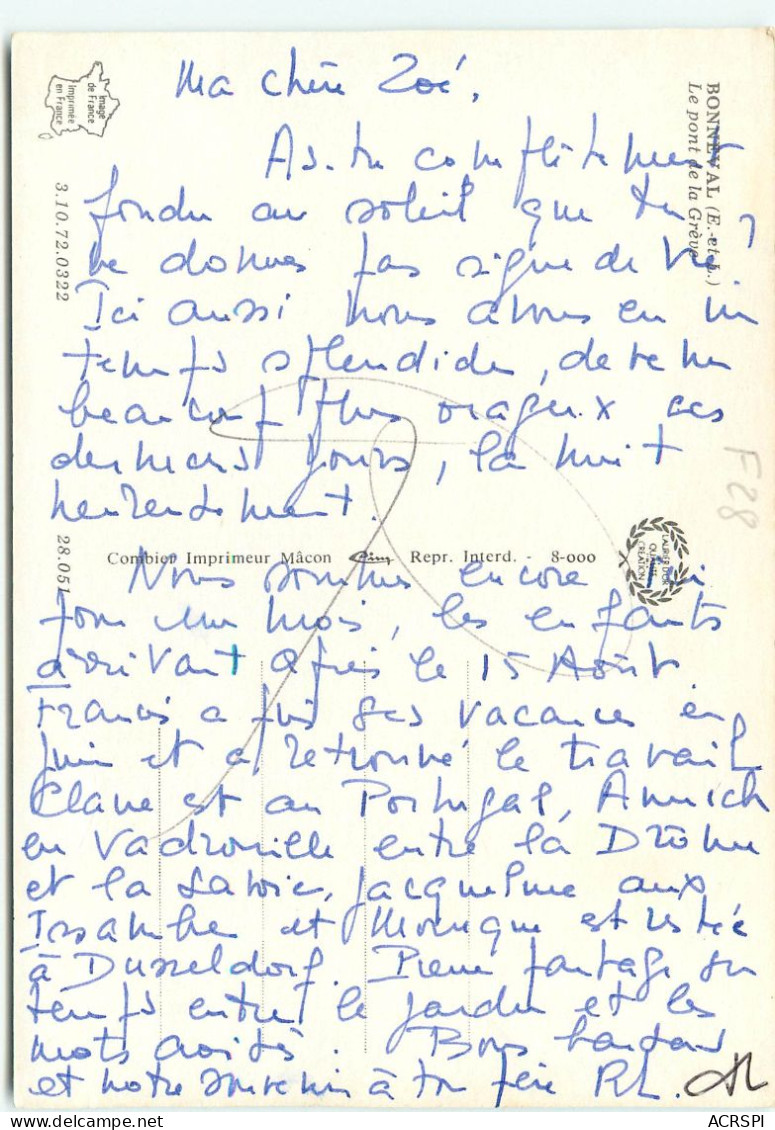 Ma chère Zoé,
As-tu complètement
fondu au soleil que tu
ne donnes pas signe de vie ?
Ici aussi nous avons eu un
temps splendide, devenu
beaucoup plus orageux ces
derniers jours, la nuit
heureusement.
Nous sommes encore ici
pour un mois, les enfants
arrivant après le 15 Août.
Francis a pris ses vacances en
Juin et a retrouvé le travail
Claire est au Portugal, Annick
en vadrouille entre la Drôme
et la Savoie, Jacqueline aux
et Monique est restée
à Dusseldorf. Pierre partage son
temps entre le jardin et les
mots croisés. Bons
et notre souvenir à ton père RL.
BONNEVAL (E.-et-L.)
Le pont de la Grève
Image
de France
Imprimée
en France
3.10.72.0322
28.051
Combier Imprimeur Mâcon Repr. Interd. - 8-000
LAURIER D'OR
QUALITÉ
CRÉATION
F28
ACRSPI